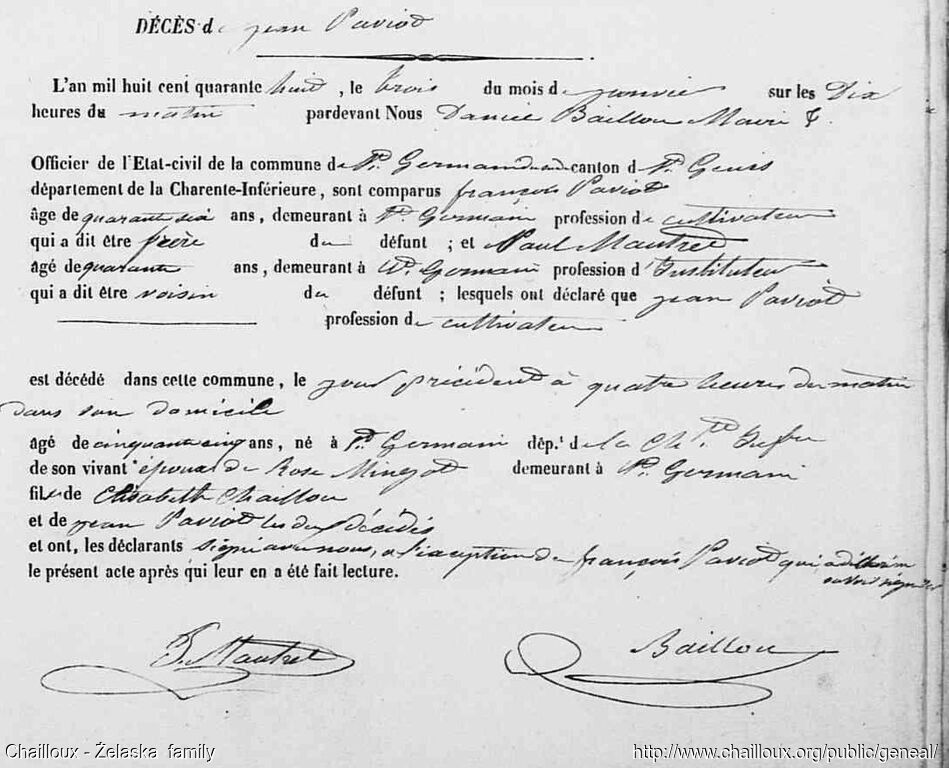 DÉCÈS de jean Paviot
L'an mil huit cent quarante huit, le trois du mois de janvier sur les Dix
heures du matin pardevant Nous Daniel Baillou Maire &.
Officier de l'Etat-civil de la commune de St. Germain canton d St. Genis
département de la Charente-Inférieure, sont comparus françois Paviot
âge de quarante six ans, demeurant à St. Germain profession de cultivateur
qui a dit être frère du défunt ; et Paul Mautret
âgé de quarante ans, demeurant à St. Germain profession d'Instituteur
qui a dit être voisin du défunt ; lesquels ont déclaré que jean Paviot
profession de cultivateur
est décédé dans cette commune, le jour précédent à quatre heures du matin
dans son domicile
âgé de cinquante cinq ans, né à St. Germain dép.t de la Ch.te Infre
de son vivant époux de Rose demeurant à St. Germain
fils de Elisabeth Chaillou
et de jean Paviot les deux décédés
et ont, les déclarants signé avec nous, a l'exception de françois Paviot qui a déclaré ne
savoir signer
le présent acte après qui leur en a été fait lecture.
P. Mautret
Baillou
Chailloux - Želaska family
http://www.chailloux.org/public/geneal/